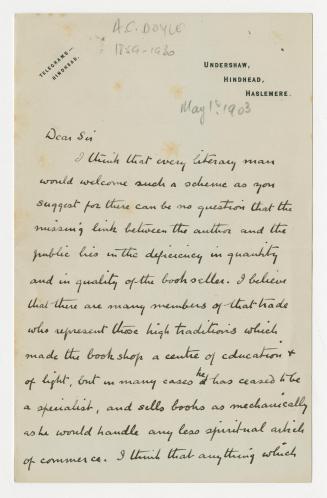 A.C. DOYLE
1859-1930
TELEGRAMS—
HINDHEAD.
UNDERSHAW,
HINDHEAD,
HASLEMERE.
May 1st 1903
Dear Sir
I think that every literary man
would welcome such a scheme as you
suggest for there can be no question that the
missing link between the author and the
public lies in the deficiency in quantity
and in quality of the bookseller. I believe
that there are many members of that trade
who represent those high traditions which
made the bookshop a centre of education &
of light, but in many cases he has ceased to be
a specialist, and sells books as mechanically
as he would handle any less spiritual article
of commerce. I think that anything which